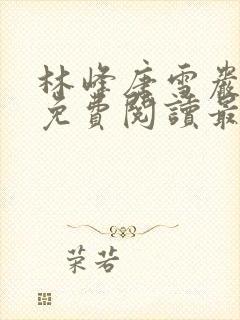 林峰唐雪嚴
免費閱讀最
荣若